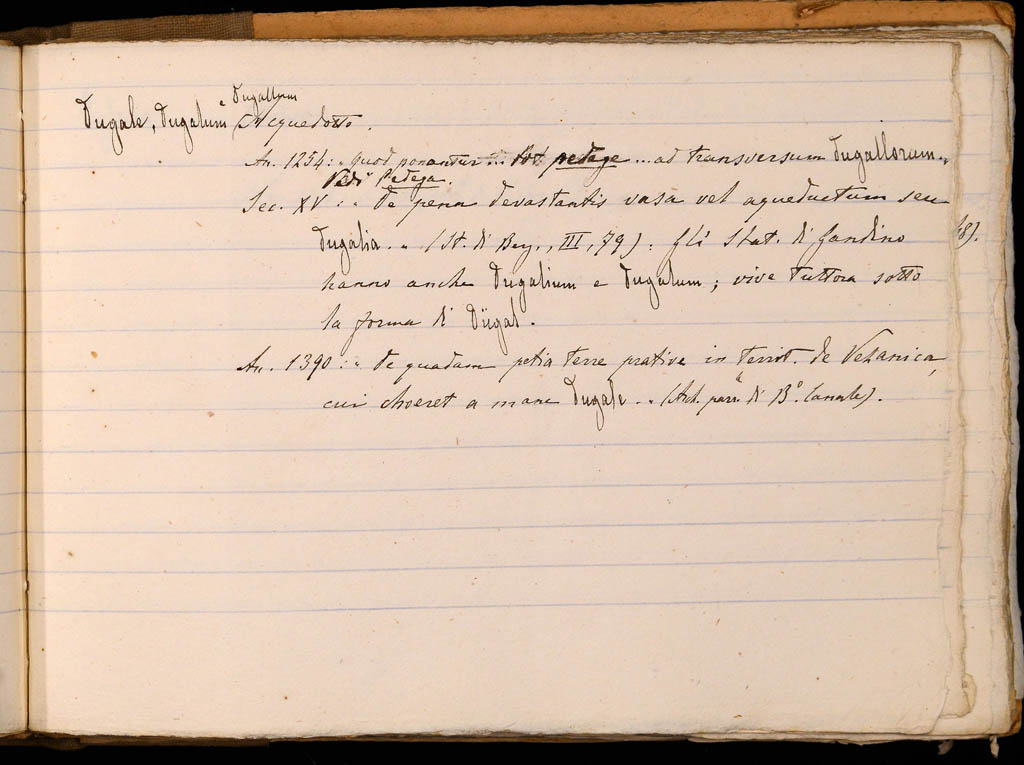 Dugale, Dugalum e Dugallum Acquedotto.
An. 1254: "Quod ponantur ... tot pedage ... ad transversum dugallorum."
Vedi Pedega.
Sec. XV: "De pena devastantis vasa vel aqueductum seu
dugalia." (St. di Berg., III, 79). Gli Stat. di Gandino
hanno anche dugalium e dugalum; vive tuttora sotto
la forma di Dügal.
An. 1390: "De quadam petia terre prative in territ. de Vezanica,
cui choeret a mane dugale." (Arch. parr. di B.º Canale).
48).